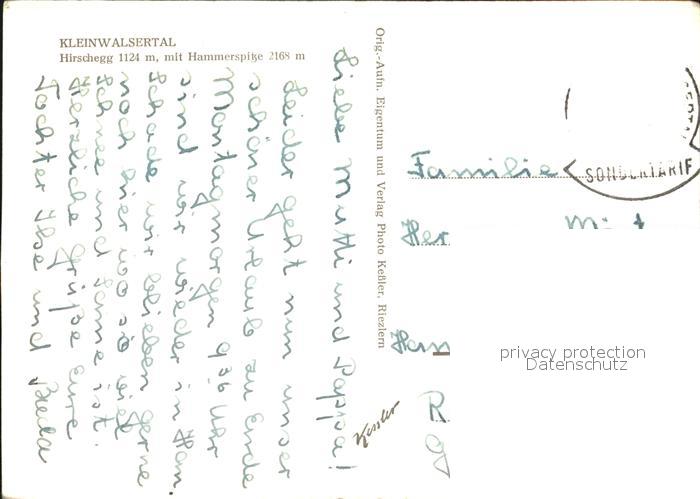 KLEINWALSERTAL
Hirschegg 1124 m, mit Hammerspitze 2168 m
Liebe Mutti und Pappa!
Leider geht nun unser
schöner Urlaub zu Ende
Montagmorgen 9³⁶ Uhr
sind wir wieder in Han.
Schade wir blieben gerne
noch hier wo so viel
Schnee und Sonne ist.
Herzliche Grüße Eure
Tochter Ilse und
Orig.-Aufn. Eigentum und Verlag Photo Keßler, Riezlern
Kessler
SONDERTARIF
Familie
Her
Han
R.
privacy protection
Datenschutz